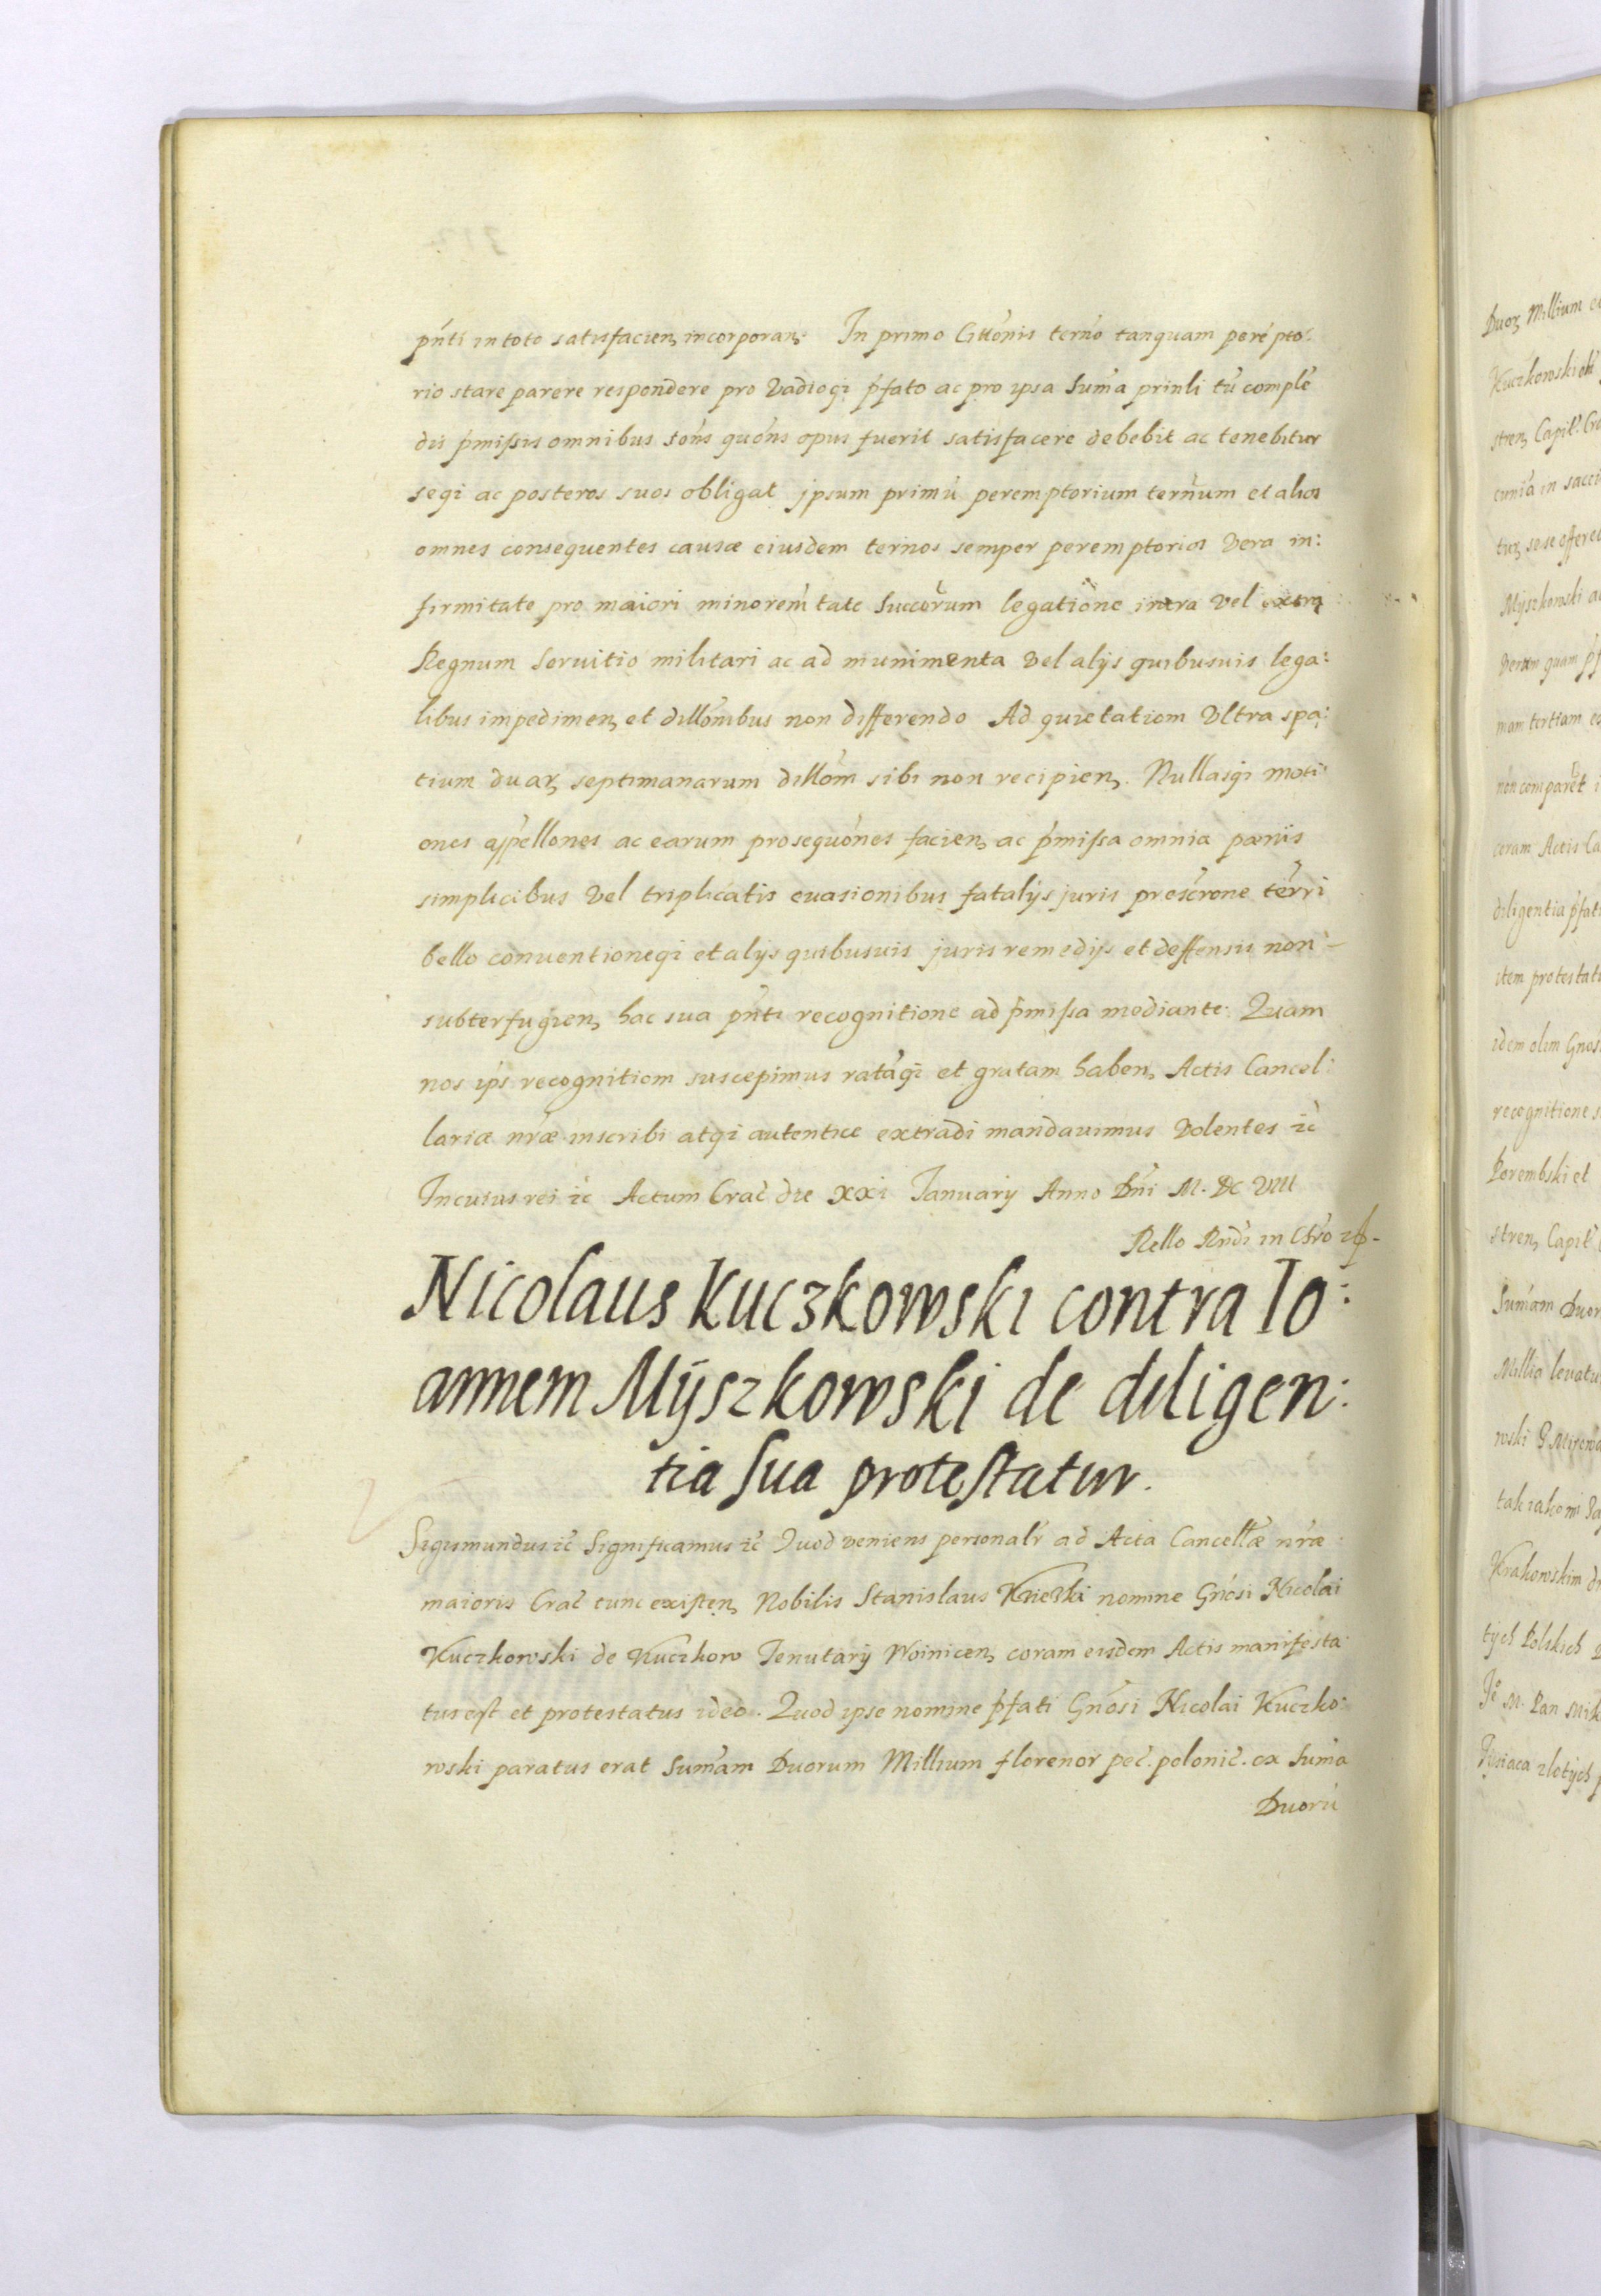 pńti in toto satisfacien, incorporan, In primo Cittõnis terño tanquam perẽpto:
rio stare parere respondere pro Vadioq; p̃fato ac pro ipsa Suma prinli tũ complẽ
dis p̃missis omnibus tõns quõns opus fuerit satisfacere debebit ac tenebitur
seq; ac posteros suos obligat ipsum primũ peremptorium terñum et alios
omnes consequentes causæ eiusdem terños semper peremptorios Vera in:
firmitate pro maiori minorem̃ tate Succõrum legatione intra vel extra
Regnum Seruitio militari ac ad munimenta vel alijs quibusuis lega:
libus impedimen, et dillõnibus non differendo Ad quietatiom Vltra spa:
tium duar, septimanarum dillõm sibi non recipien, Nullasq; moti
ones appellones ac earum prosequõnes facien, ac p̃missa omnia pœnis
simplicibus vel triplicatis euasionibus fatalijs juris presc̃rone tẽrri
bello conuentioneq; et alijs quibusuis juris remedijs et deffensis non
subterfugien, hac sua pñti recognitione ad p̃missa mediante. Quam
nos ips recognitiom suscepimus ratãq; et gratam haben, Actis Cancel:
lariæ nr̃æ inscribi atq; autentice extradi mandauimus Volentes ꝛc̃
In cuius rei ꝛc̃ Actum Crac̃ die xxi January Anno Dñi M. DC VIII
Rello Rndi in Chr̃o
Nicolaus Kuczkowski contra Io:
annem Mÿszkowski de diligen:
tia sua protestatur.
Sigismundus ꝛc̃ Significamus ꝛc̃ Quod veniens personalr̃ ad Acta Cancellæ nr̃æ
maioris Crac̃ tunc existen, Nobilis Stanislaus Knieżki nomine Gñosi Nicolai
Kuczkowski de Kuczkow Tenutarÿ Woinicen, coram eisdem Actis manifesta
tus est et protestatus ideo. Quod ipse nomine p̃fati Gñosi Nicolai Kuczko:
wski paratus erat Sumam Duorum Millium florenor pec̃. polonic̃. ex Suma
Duorũ
Duor, Millium
Kuczkowski
stren, Capit̃.
Mÿszkowski
mam tertiam
non comparẽt
coram Actis
diligentia p̃fati
item protestat
idem olim
recognitione
Porembski et
stren, Capit̃
Sumam Duor
Millia leuatu
wski
Krakowskim
tÿch Polskich
Je̊ M. Pan
Tÿsiaca zlotÿch